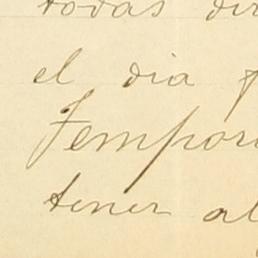 todas dir
el dia p
Tempor
tener al